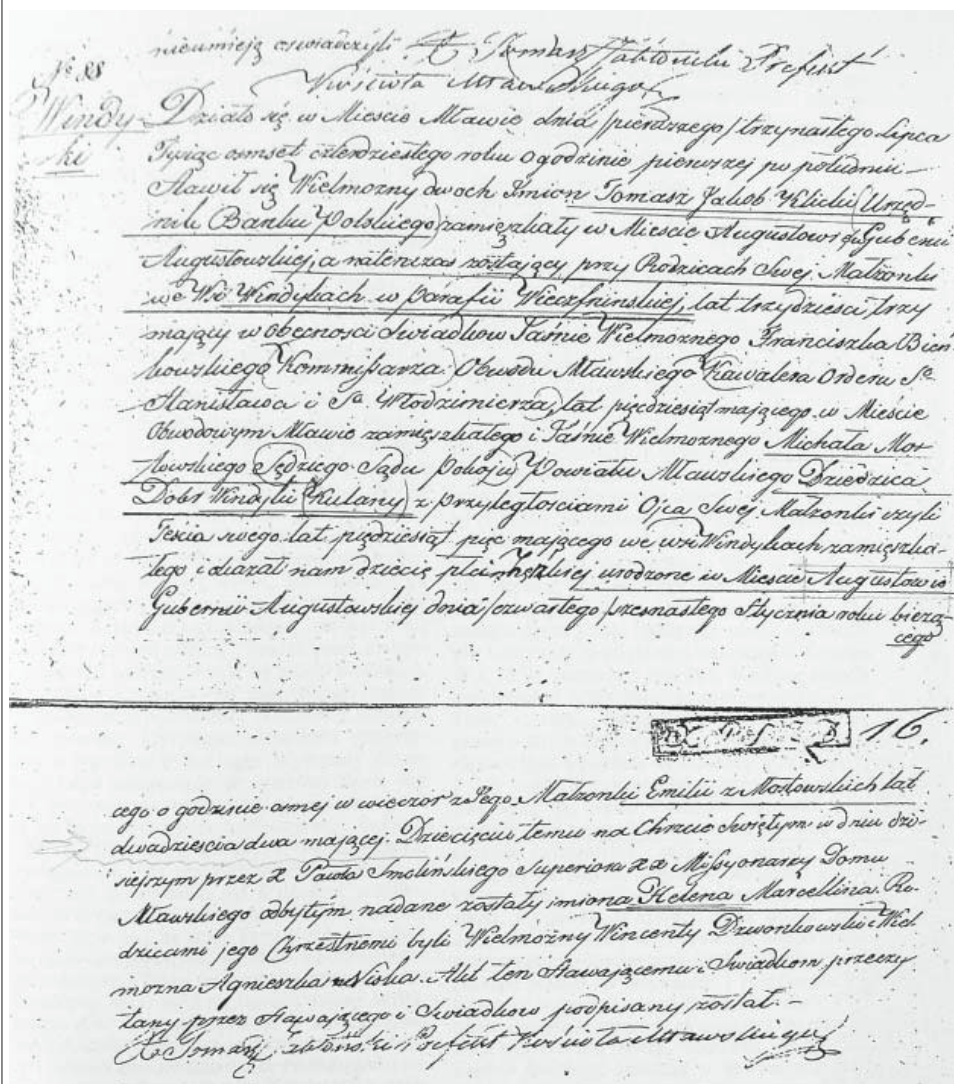 nieumieją oświadczyli X Tomasz Prefekt
Kościoła Mławskiego
№ 88
Windy-
ki
Działo się w Mieście Mławie dnia /pierwszego/ trzynastego Lipca
Tysiąc osmset czterdziestego roku o godzinie pierwszej po południu –
Stawił się Wielmożny dwoch Imion Tomasz Jakob Klicki (Urzęd-
nik Banku Polskiego) zamięszkały w Mieście Augustowie Gubernii
Augustowskiej, a natenczas zostający przy Rodzicach Swej Małżonki
we Wsi Windykach w parafii Wieczfninskiej, lat trzydzieści trzy
mający w obecności Swiadkow Jaśnie Wielmożnego Franciszka Bień-
kowskiego (Kommissarza) Obwodu Mławskiego Kawalera Orderu Sgo
Stanisława i Sgo Włodzimierza, lat pięcdziesiąt mającego w Mieście
Obwodowym Mławie zamięszkałego i Jaśnie Wielmożnego Michała Mos-
towskiego (Sędziego Sądu Pokoju) Powiatu Mławskiego Dziedzica
Dobr Windyki (Kulany) z przyległościami Ojca Swej Małżonki czyli
Teścia swego lat piędziesiąt pięc mającego we wsi Windykach zamięszka-
łego i okazał nam dziecię płci urodzone w Mieście Augustowie
Gubernii Augustowskiej dnia /czwartego/ szesnastego Stycznia roku bieżą-
cego
16.
cego o godzinie osmej w wieczor z Jego Małżonki Emilii z Mostowskich lat
dwadzieścia dwa mającej. Dziecięciu temu na Chrzcie Swiętym w dniu dzi-
siejszym przez X Pawła Smolińskiego Superiora XX Missyonarzy Domu
Mławskiego odbytym nadane zostały imiona Helena Marcellina. Ro-
dzicami jego Chrzestnemi byli Wielmożny Wincenty Dzwonkowski i Wiel
można Agnieszka. Akt ten stawającemu i Swiadkom przeczy
tany przez Stawającego i Swiadkow podpisany został. –
X Tomasz Prefekt Kościoła Mławskiego